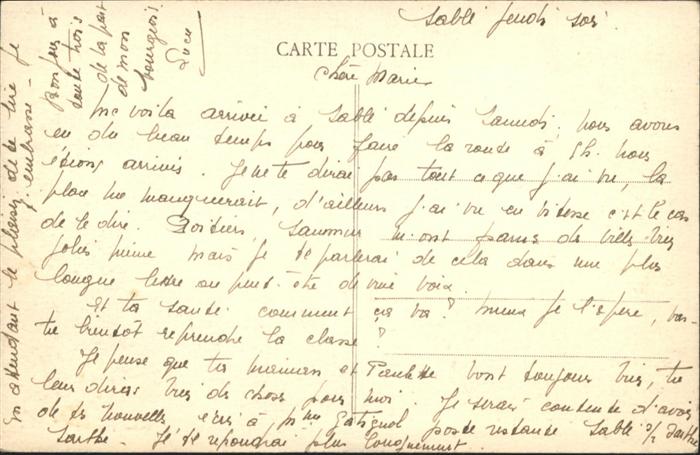 Sablé jeudi soir
CARTE POSTALE
Chère Marie
Me voila arrivée à Sablé depuis Samedi. nous avons
eu du beau temps pour faire la route à 5h. nous
étions arrivés. Je ne te dirai pas tout ce que j'ai vu, la
place me manquerait, d'ailleurs j'ai vu en vitesse c'est le cas
de le dire. Poitiers, Saumur m'ont parus de villes très
jolies même mais je te parlerai de cela dans une plus
longue lettre ou peut-être de vive voix.
Et ta santé comment ça va? mieux je l'espère, vas-
tu bientôt reprendre la classe?
Je pense que ta maman et Paulette vont toujours bien, tu
leur diras bien des choses pour moi. Je serais contente d'avoir
de tes nouvelles, écris à, Gatignol poste restante Sablé s/ Sarthe
Sarthe. Je te répondrai plus longuement.
En attendant le plaisir de te lire je
t'embrasse.
Bonjour à
toute trois
de la part
de mon
bourgeois.
Luce